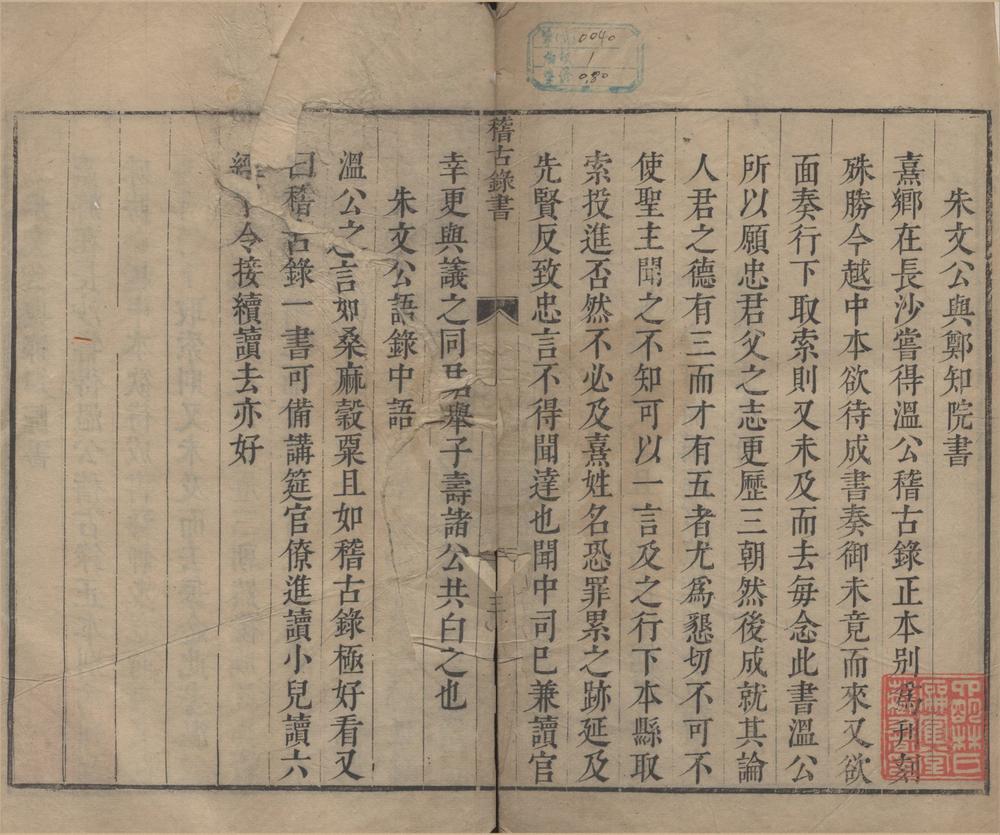 朱文公與鄭知院書
熹鄉在長沙嘗得溫公稽古錄正本別爲刊刻
殊勝今越中本欲待成書奏御未竟而來又欲
面奏行下取索則又未及而去每念此書溫公
所以願忠君父之志更歷三朝然後成就其論
人君之德有三而才有五者尤爲懇切不可不
使聖主聞之不知可以一言及之行下本縣取
索投進否然不必及熹姓名恐罪累之跡延及
先賢反致忠言不得聞達也聞中司已兼讀官
稽古錄書
三
幸更與議之同君舉子壽諸公共白之也
朱文公語錄中語
溫公之言如桑麻穀粟且如稽古錄極好看又
曰稽古錄一書可備講筵官僚進讀小兒讀六
經了令接續讀去亦好
0040
1
0.80